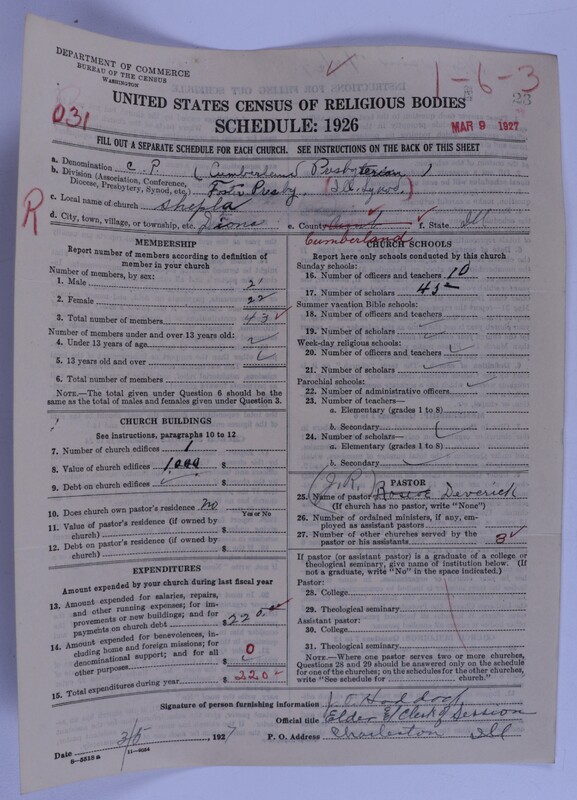 DEPARTMENT OF COMMERCE
BUREAU OF THE CENSUS
WASHINGTON
1-6-3
28
031
UNITED STATES CENSUS OF RELIGIOUS BODIES
SCHEDULE: 1926
MAR 9 1927
FILL OUT A SEPARATE SCHEDULE FOR EACH CHURCH. SEE INSTRUCTIONS ON THE BACK OF THIS SHEET
a. Denomination C. P. (Cumberland Presbyterian)
b. Division (Association, Conference, Diocese, Presbytery, Synod, etc.) Foster Presby
c. Local name of church
R
d. City, town, village, or township, etc. Diona e. County Cumberland f. State Ill
MEMBERSHIP
Report number of members according to definition of
member in your church
Number of members, by sex:
1. Male 21
2. Female 22
3. Total number of members 43
Number of members under and over 13 years old:
4. Under 13 years of age
5. 13 years old and over
6. Total number of members
NOTE.—The total given under Question 6 should be the
same as the total of males and females given under Question 3.
CHURCH BUILDINGS
See instructions, paragraphs 10 to 12
7. Number of church edifices 1
8. Value of church edifices 1000 $
9. Debt on church edifices $
10. Does church own pastor's residence? No
Yes or No
11. Value of pastor's residence (if owned by
church) $
12. Debt on pastor's residence (if owned by
church) $
EXPENDITURES
Amount expended by your church during last fiscal year
13. Amount expended for salaries, repairs,
and other running expenses; for im-
provements or new buildings; and for
payments on church debt $220.00
14. Amount expended for benevolences, in-
cluding home and foreign missions; for
denominational support; and for all
other purposes 0
15. Total expenditures during year $ 220
CHURCH SCHOOLS
Report here only schools conducted by this church
Sunday schools:
16. Number of officers and teachers 10
17. Number of scholars 45
Summer vacation Bible schools:
18. Number of officers and teachers
19. Number of scholars
Week-day religious schools:
20. Number of officers and teachers
21. Number of scholars
Parochial schools:
22. Number of administrative officers
23. Number of teachers—
a. Elementary (grades 1 to 8)
b. Secondary
24. Number of scholars—
a. Elementary (grades 1 to 8)
b. Secondary
PASTOR
(J. R.)
25. Name of pastor Roscoe Deverick
(If church has no pastor, write "None")
26. Number of ordained ministers, if any, em-
ployed as assistant pastors
27. Number of other churches served by the
pastor or his assistants 3
If pastor (or assistant pastor) is a graduate of a college or
theological seminary, give name of institution below. (If
not a graduate, write "No" in the space indicated.)
Pastor:
28. College
29. Theological seminary
Assistant pastor:
30. College
31. Theological seminary
NOTE.—Where one pastor serves two or more churches,
Questions 28 and 29 should be answered only on the schedule
for one of the churches; on the schedules for the other churches,
write "See schedule for church."
Signature of person furnishing information
Official title Elder & Clerk of Session
Date 3/5, 1927 P. O. Address Charleston Ill
8—5518a 11—9034